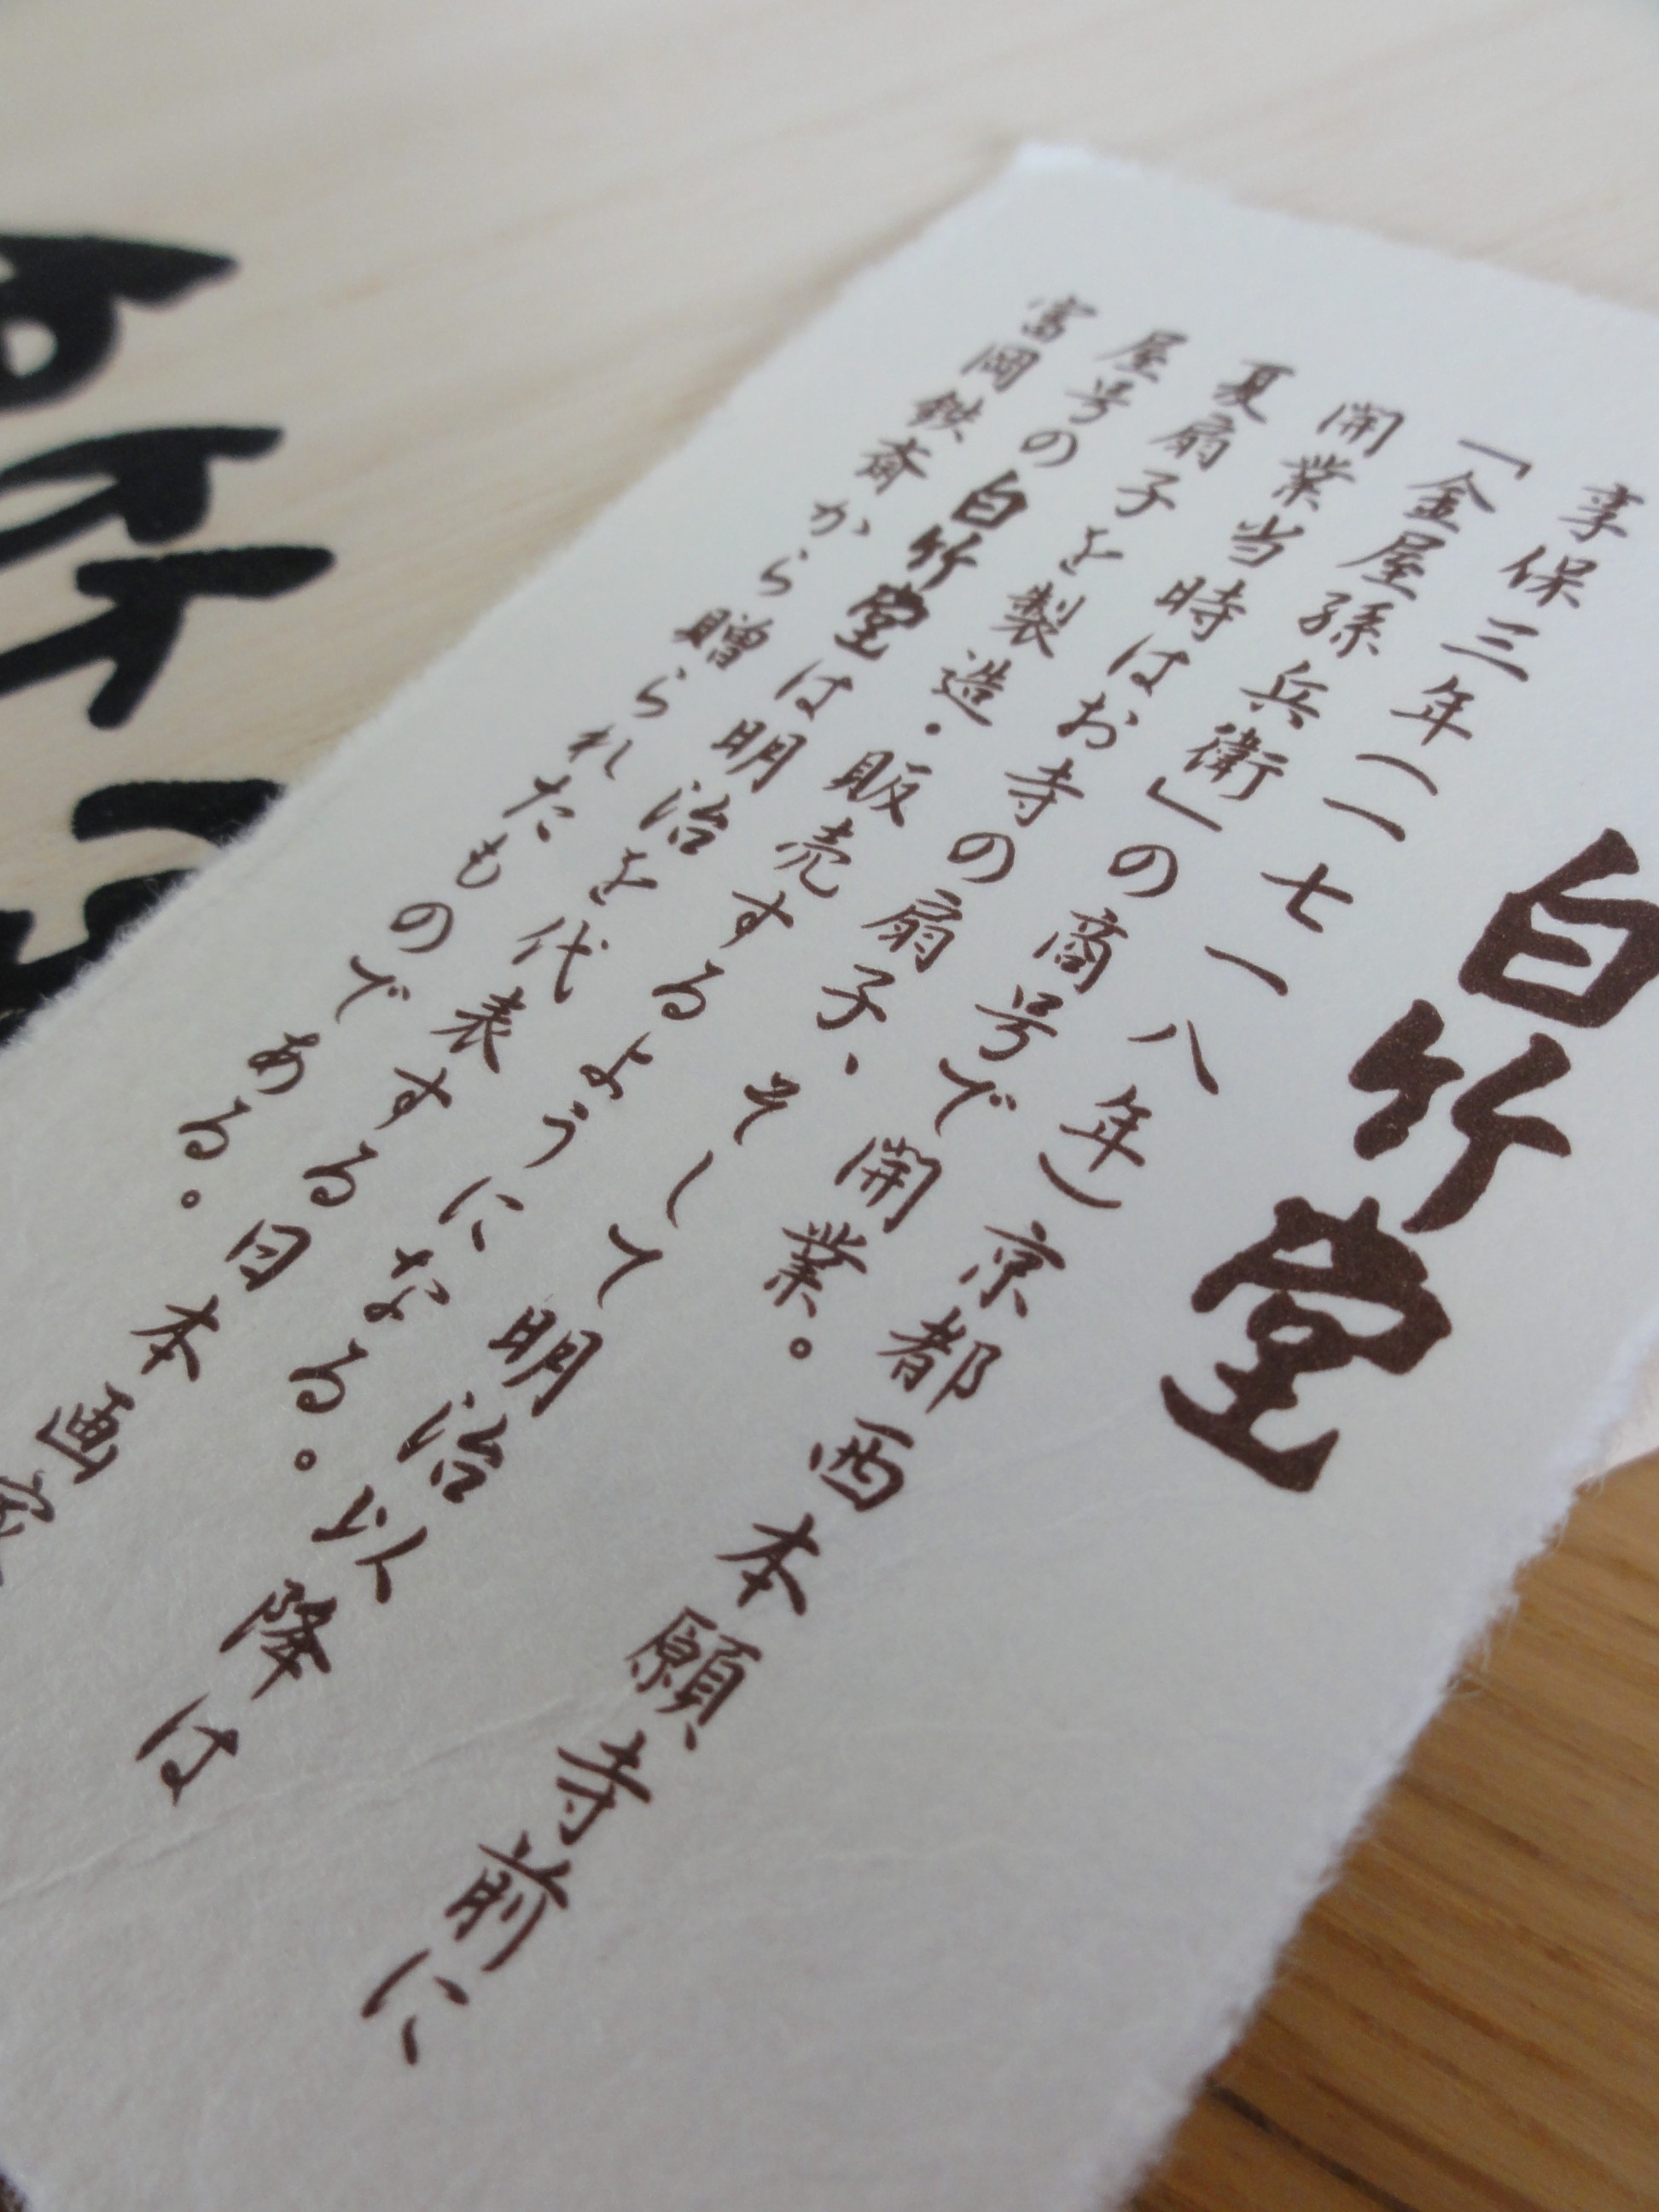 白竹堂
享保三年(一七一八年)京都西本願寺前に
「金屋孫兵衛」の商号で開業。
開業当時はお寺の扇子、そして明治以降は
夏扇子を製造・販売するようになる。
屋号の白竹堂は明治を代表する日本画家
富岡鉄斎から贈られたものである。